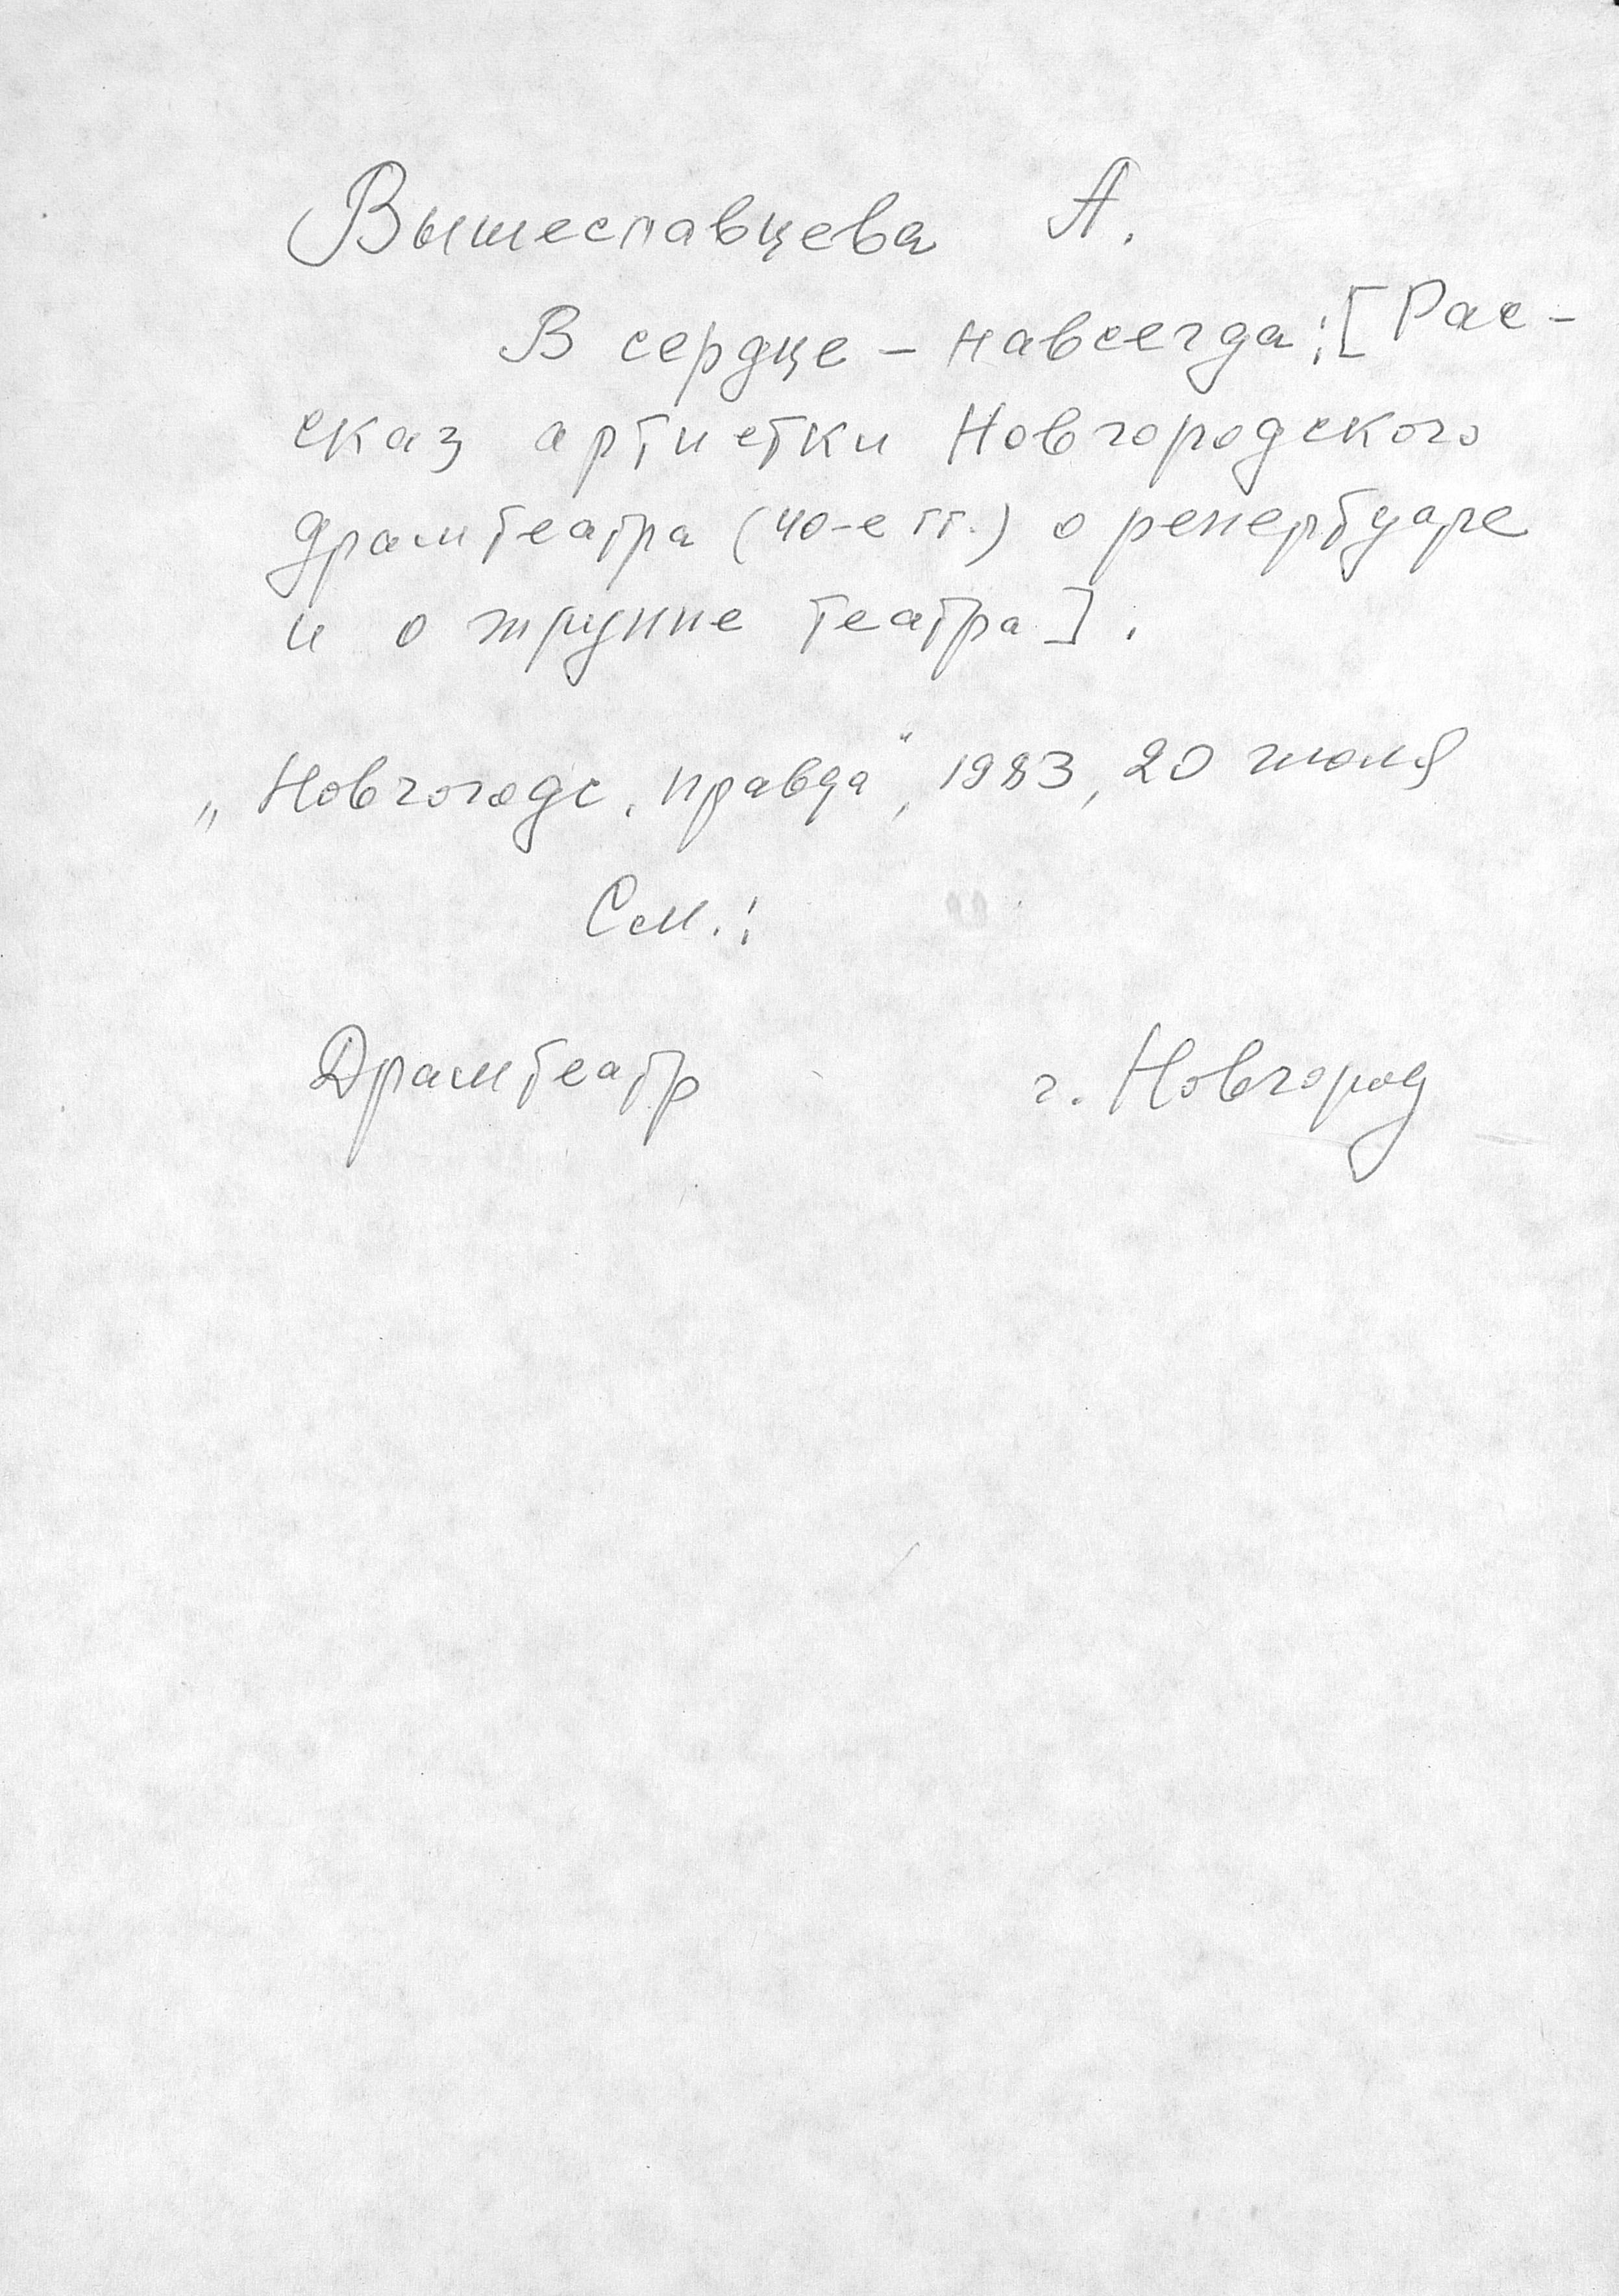 Вышеславцева А.
В сердце – навсегда: [Рас-
сказ артистки Новгородского
драмтеатра (40-е гг.) о репертуаре
и о труппе театра].
„Новгородс. правда", 1983, 20 июля
См.:
Драмтеатр г. Новгород